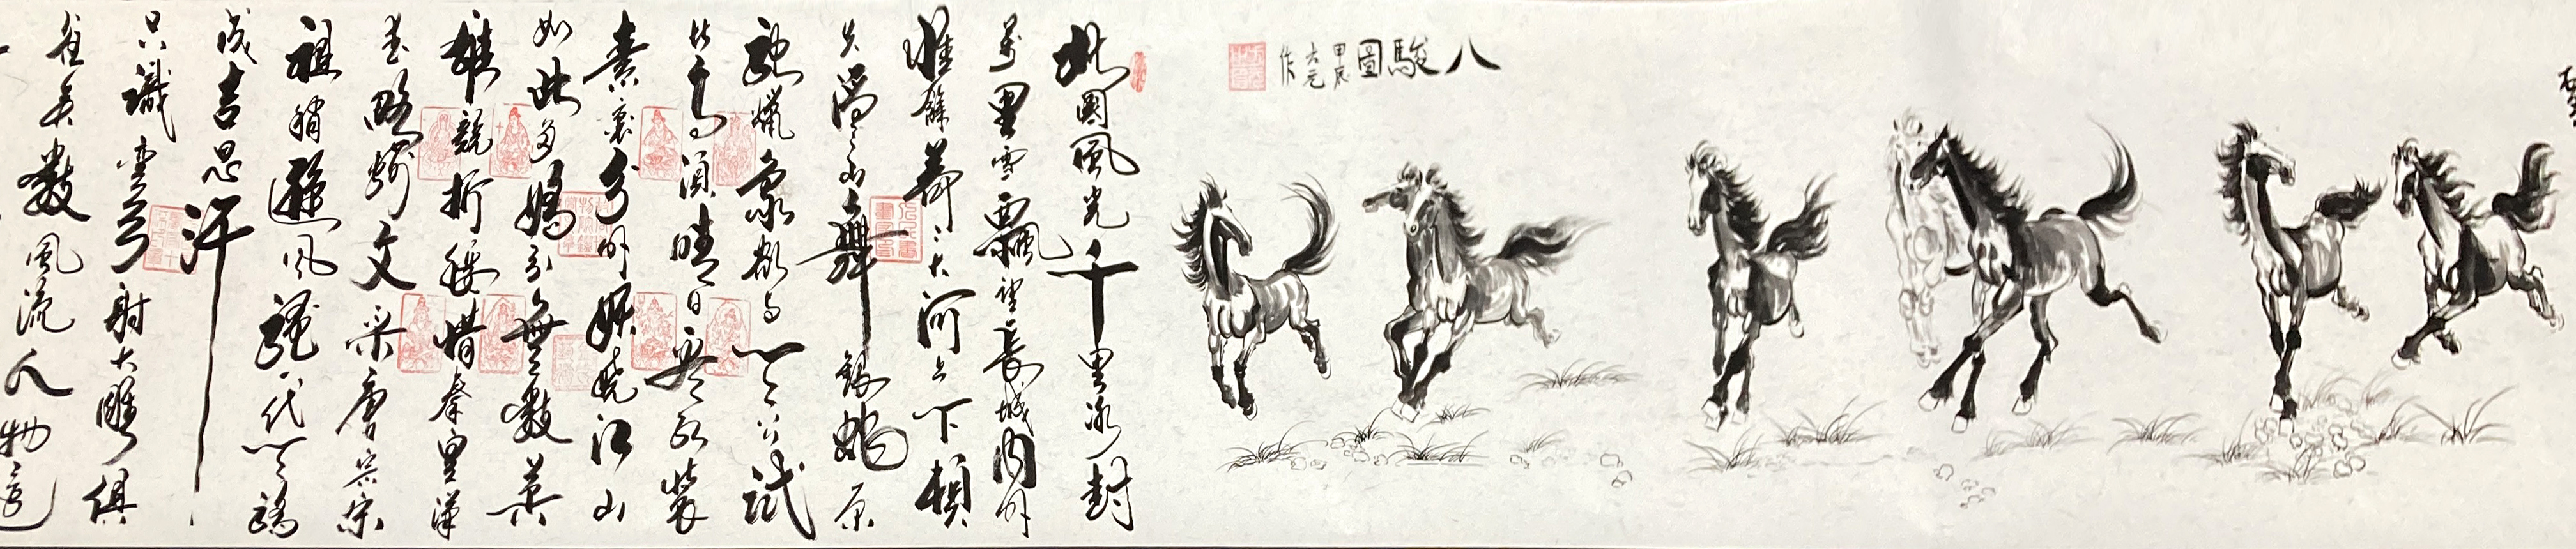 八駿圖
甲辰
大元
作
北國風光千里冰封
萬里雪飄望長城內外
惟餘莽々大河上下頓
失滔々山舞銀蛇原
馳蠟象欲與天公試
比高須晴日看紅裝
素裹分外妖嬈江山
如此多嬌引無數英
雄競折腰惜秦皇漢
武略輸文采唐宗宋
祖稍遜風騷一代天驕
成吉思汗
只識彎弓射大雕俱
往矣數風流人物還